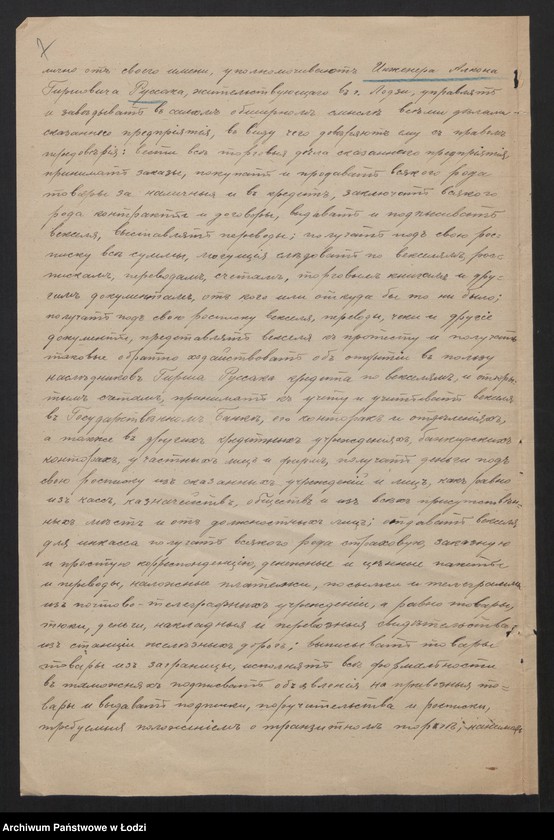 лично отъ своего имени, уполномочиваютъ Инженера Алкона
Гиршовича Руссака, жительствующаго въ г. Лодзи, управлять
и завѣдывать въ самомъ обширномъ смыслѣ всѣми дѣлами
сказаннаго предпріятія, въ виду чего довѣряютъ ему съ правомъ
передовѣрія: Вести всѣ торговыя дѣла сказаннаго предпріятія,
принимать заказы, покупать и продавать всякого рода
товары за наличныя и въ кредитъ, заключать всякого
рода контракты и договоры, выдавать и подписывать
векселя, выставлять переводы; получать подъ свою рос-
писку всѣ суммы, могущія слѣдовать по векселямъ, рос-
пискамъ, переводамъ, счетамъ, торговымъ книгамъ и дру-
гимъ документамъ, отъ кого или откуда бы то ни было;
получать подъ свою росписку векселя, переводы, чеки и другіе
документы, предоставлять векселя къ протесту и получать
таковые обратно ходатайствовать объ открытіи въ пользу
наслѣдниковъ Гирша Руссака кредита по векселямъ, и откры-
тымъ счетамъ, принимать къ учету и учитывать векселя
въ Государственномъ Банкѣ, его конторахъ и отдѣленіяхъ,
а также въ другихъ кредитныхъ учрежденіяхъ, банкирскихъ
конторахъ, у частныхъ лицъ и фирмъ, получать деньги подъ
свою росписку изъ сказанныхъ учрежденій и лицъ, какъ равно
изъ кассъ, казначействъ, обществъ и изъ всѣхъ присутствен-
ныхъ мѣстъ и отъ должностныхъ лицъ; отдавать векселя
для инкассо получать всякого рода страховую, заказную
и простую корреспонденцію, денежные и цѣнные пакеты
и переводы, наложные платежи, посылки и телеграммы
изъ почтово-телеграфныхъ учрежденій, а равно товары,
тюки, деньги, накладныя и перевозныя свидѣтельства
изъ станціи желѣзныхъ дорогъ; выписывать товары
товары изъ заграницы, исполнять всѣ формальности
въ таможняхъ подписывать объявленія на привозныя то-
вары и выдавать подписки, поручительства и росписки,
требуемыя положеніемъ о транзитномъ торгѣ;
Archiwum Państwowe w Łodzi